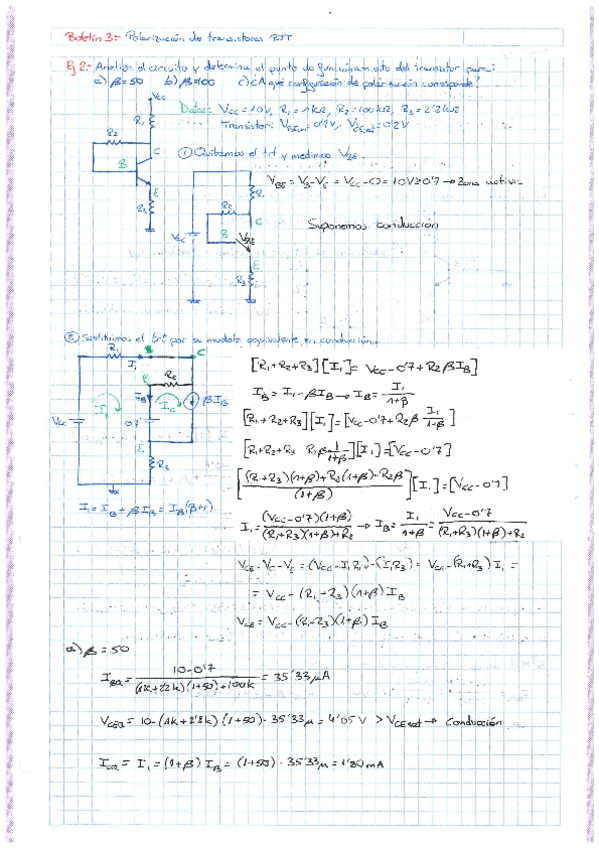 Boletín 3:- Polarización de transistores BJT
Ej 2:- Analiza el circuito y determina el punto de funcionamiento del transistor para:
a) β=50 b) β=100 c) ¿A qué configuración de polarización corresponde?
Datos: Vcc = 10V, R1 = 1kΩ, R2 = 100kΩ, R3 = 2'2kΩ
Transistor: VBEon = 0'7V, VCEsat = 0'2V
Vcc
R1
R2
C
B
E
① Quitamos el trt y medimos VBE
VBE = VB-VE = Vcc-0 = 10V ≥ 0'7 → Zona activa
Suponemos conducción
R1
R2
C
Vcc
B
VBE
E
R3
② Sustituimos el trt por su modelo equivalente en conducción
R1
B
C
I1
R2
IB
βIB
Vcc
0'7
E
I1 = IB + βIB = IB(β+1)
[R1+R2+R3][I1] = Vcc-0'7+R2βIB]
IB = I1-βIB → IB = I1/1+β
[R1+R2+R3][I1]=[Vcc-0'7+R2β I1/1+β]
[R1+R2+R3 R2β 1/1+β][I1]=[Vcc-0'7]
[(R1+R3)(1+β)+R2(1+β)-R2β/(1+β)][I1]=[Vcc-0'7]
I1 = (Vcc-0'7)(1+β)/(R1+R3)(1+β)+R2 → IB = I1/1+β = Vcc-0'7/(R1+R3)(1+β)+R2
VCE = VC-VE = (Vcc-I1R1)-(I1R3) = Vcc-(R1+R3)I1 =
= Vcc-(R1+R3)(1+β)IB
VCE = Vcc-(R1+R3)(1+β)IB
a) β = 50
IBQ = 10-0'7/(1k+2'2k)(1+50)+100k = 35'33μA
VCEQ = 10-(1k+2'2k)(1+50)·35'33μ = 4'05V > VCEsat → Conducción
ICQ = I1 = (1+β)IB = (1+50)·35'33μ = 1'80mA